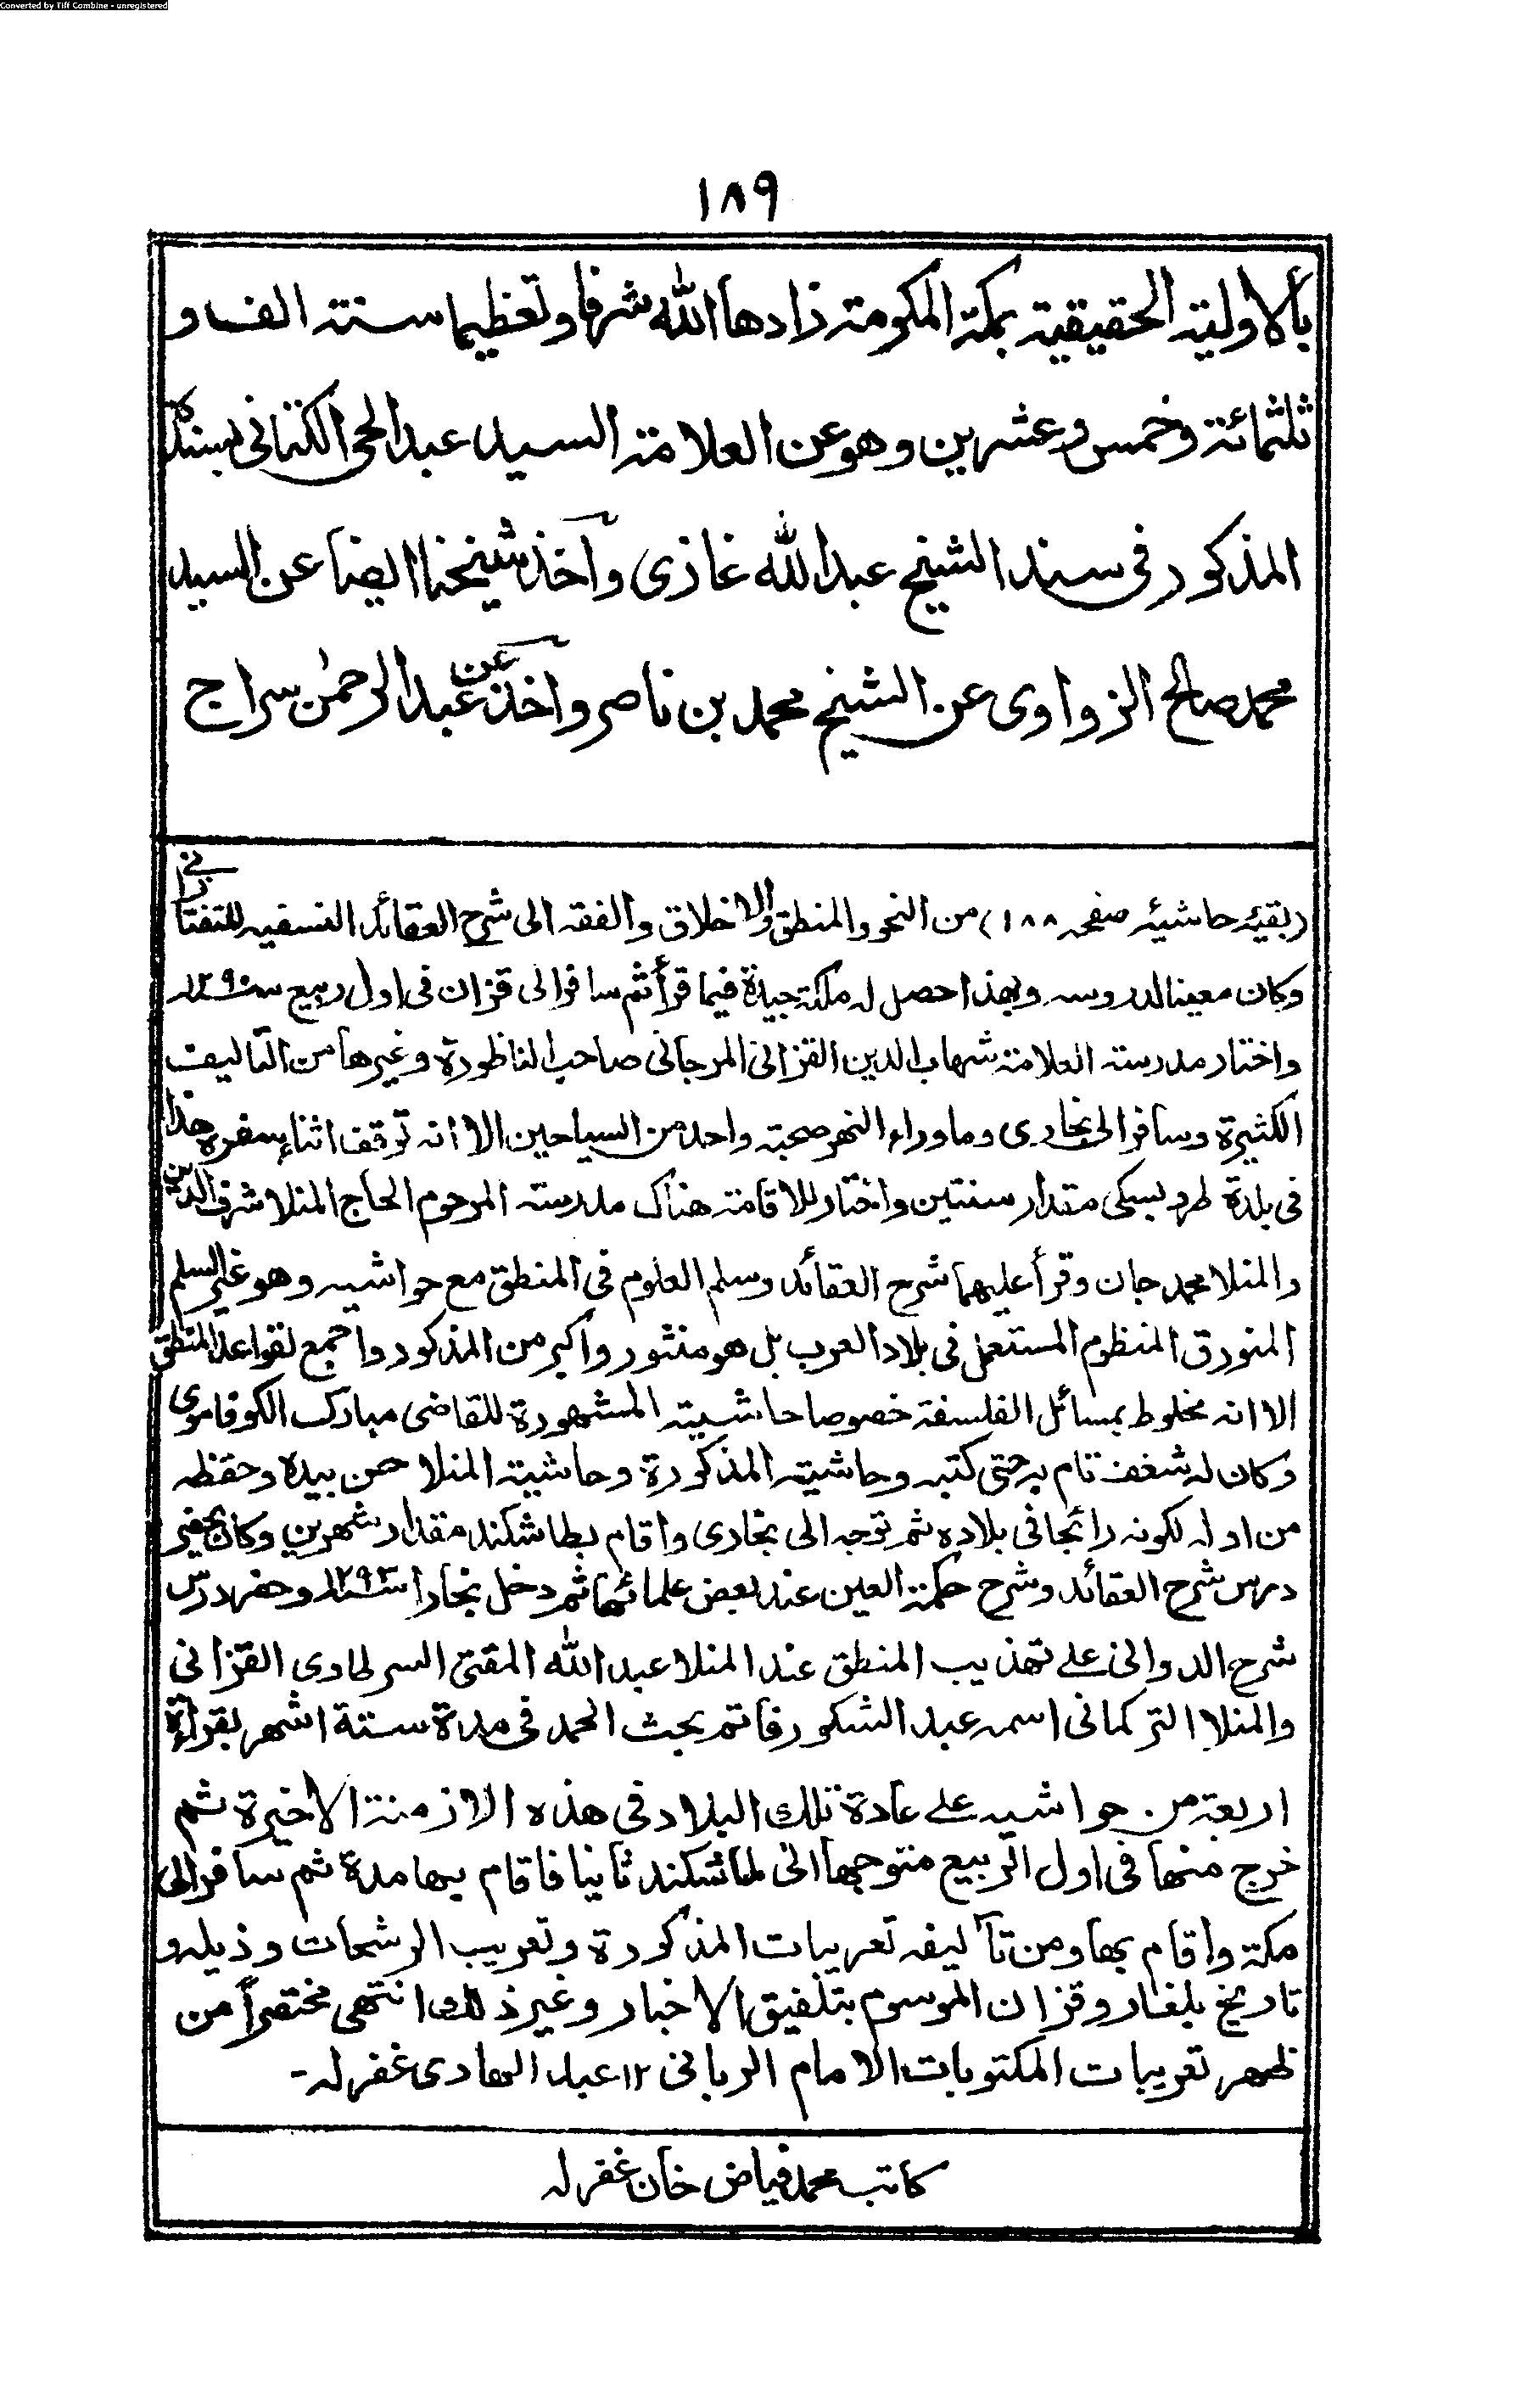 Converted by Tiff Combine - unregistered
١٨٩
بألاولية الحقيقية بمكة المكرمة زادها الله شرفا وتعظيما سنة الف و
ثلثمائة وخمس وعشرين وهو عن العلامة السيد عبدالحى الكتانى بسنده
المذكور فى سند الشيخ عبدالله غازى واخذ شيخنا ايضا عن السيد
محمد صالح الزواوى عن الشيخ محمد بن ناصر واخذ عن عبدالرحمن سراج
(بقيۂ حاشيۂ صفحہ ١٨٨) من النحو والمنطق والاخلاق والفقه الى شرح العقائد النسفيه للتفتازانى
وكان معينا لدروسه وبهذا حصل له ملكة جيدة فيما قرأ ثم سافر الى قزان فى اول ربيع سنة ١٢٩٠
واختار مدرسة العلامة شهاب الدين القزانى المرجانى صاحب الناظورة وغيرها من التأليف
الكثيرة وسافر الى بخارى وماوراء النهر صحبة واحد من السياحين الا انه توقف اثناء سفره هذا
فى بلدة طرد بسكى مقدار سنتين واختار للاقامة هناك مدرسة المرحوم الحاج المنلا شرف الدين
والمنلا محمد جان وقرأ عليهما شرح العقائد وسلم العلوم فى المنطق مع حواشيه وهو غير السلم
المنورق المنظوم المستعمل فى بلاد العرب بل هو منثور واكبر من المذكور واجمع لقواعد المنطق
الا انه مخلوط بمسائل الفلسفة خصوصا حاشيته المشهورة للقاضى مبارك الكوفاموى
وكان له شغف تام به حتى كتبه وحاشيته المذكورة وحاشية المنلا حسن بيده وحفظه
من اوله لكونه رائجا فى بلاده ثم توجه الى بخارى واقام بطاشكند مقدار شهرين وكان يحضر
درس شرح العقائد وشرح حكمة العين عند بعض علمائها ثم دخل بخارا سنة ١٢٩٣ وحضر درس
شرح الدوانى على تهذيب المنطق عند المنلا عبد الله المفتى السرطاوى القزانى
والمنلا التركمانى اسمه عبد الشكور فاتم بحث الحمد فى مدة ستة اشهر بقراءة
اربعة من حواشيه على عادة تلك البلاد فى هذه الازمنة الاخيرة ثم
خرج منها فى اول الربيع متوجها الى طاشكند ثانيا فاقام بها مدة ثم سافر الى
مكة واقام بها ومن تآليفه تعريبات المذكورة وتعريب الرشحات وذيله و
تاريخ بلغار وقزان الموسوم بتلفيق الاخبار وغير ذلك انتهى مختصرا من
ظهر تعريبات المكتوبات الامام الربانى ١٢ عبد الهادى غفرله-
كاتب محمد فياض خان غفرله